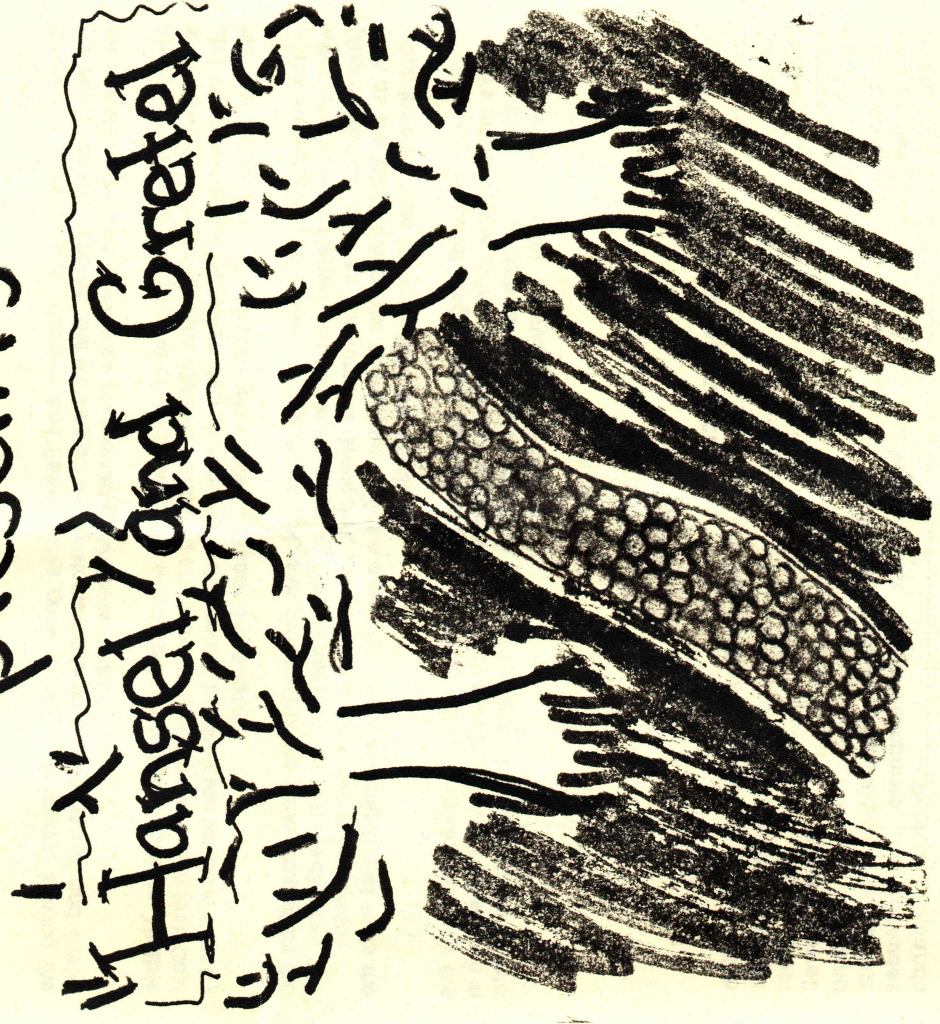 Hansel and Gretel